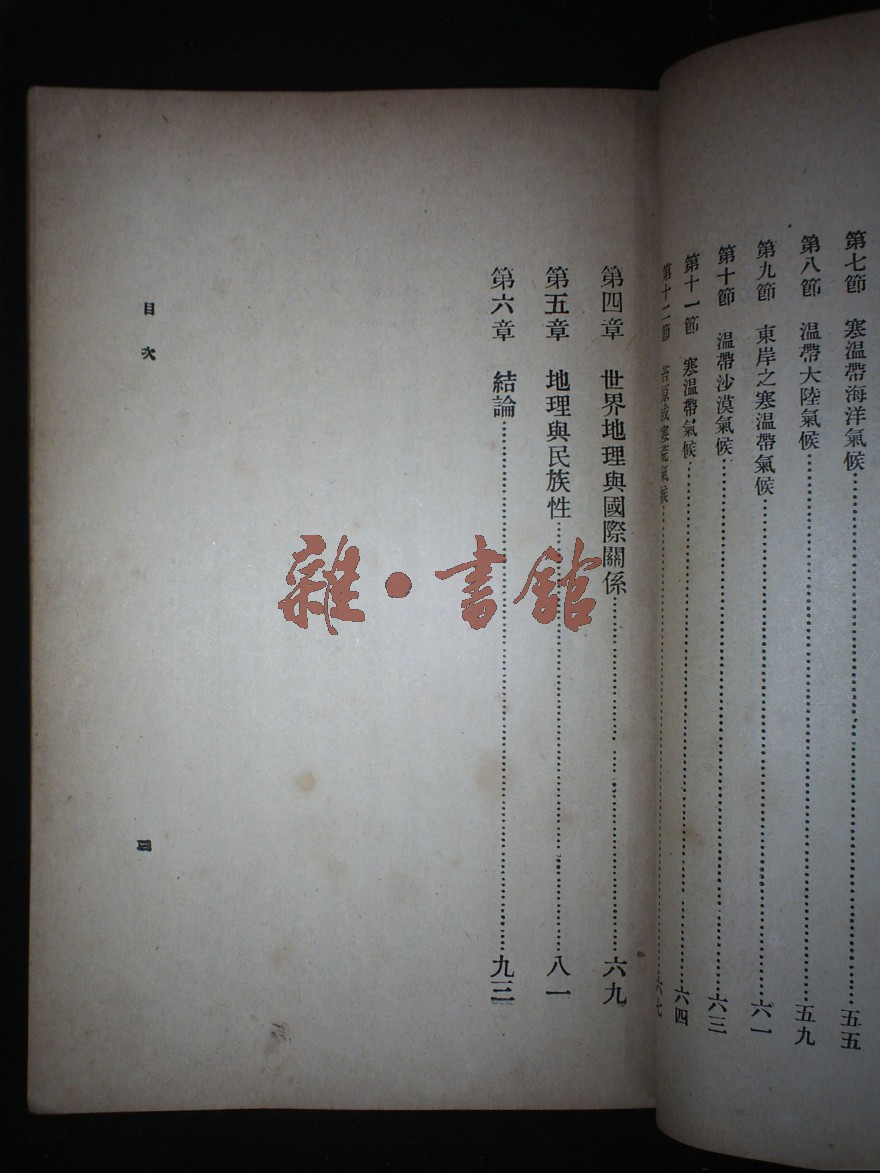 第七節　寒温帶海洋氣候……五五
第八節　温帶大陸氣候……五九
第九節　東岸之寒温帶氣候……六一
第十節　温帶沙漠氣候……六三
第十一節　寒温帶氣候……六四
第十二節　苔原或寒荒氣候……六七
第四章　世界地理與國際關係……六九
第五章　地理與民族性……八一
第六章　結論……九三
目次
四
雜·書館